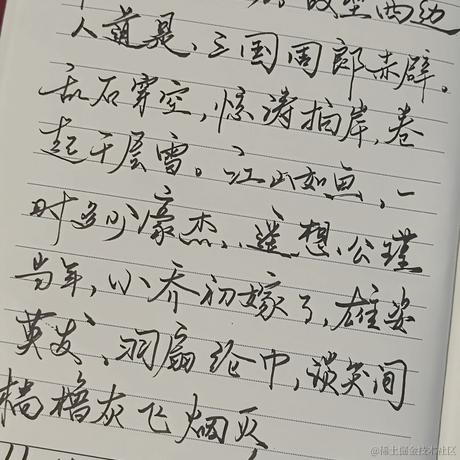 故垒西边
人道是、三国周郎赤壁。
乱石穿空,惊涛拍岸,卷
起千层雪。江山如画,一
时多少豪杰,遥想公瑾
当年,小乔初嫁了,雄姿
英发,羽扇纶巾,谈笑间
樯橹灰飞烟灭
@稀土掘金技术社区